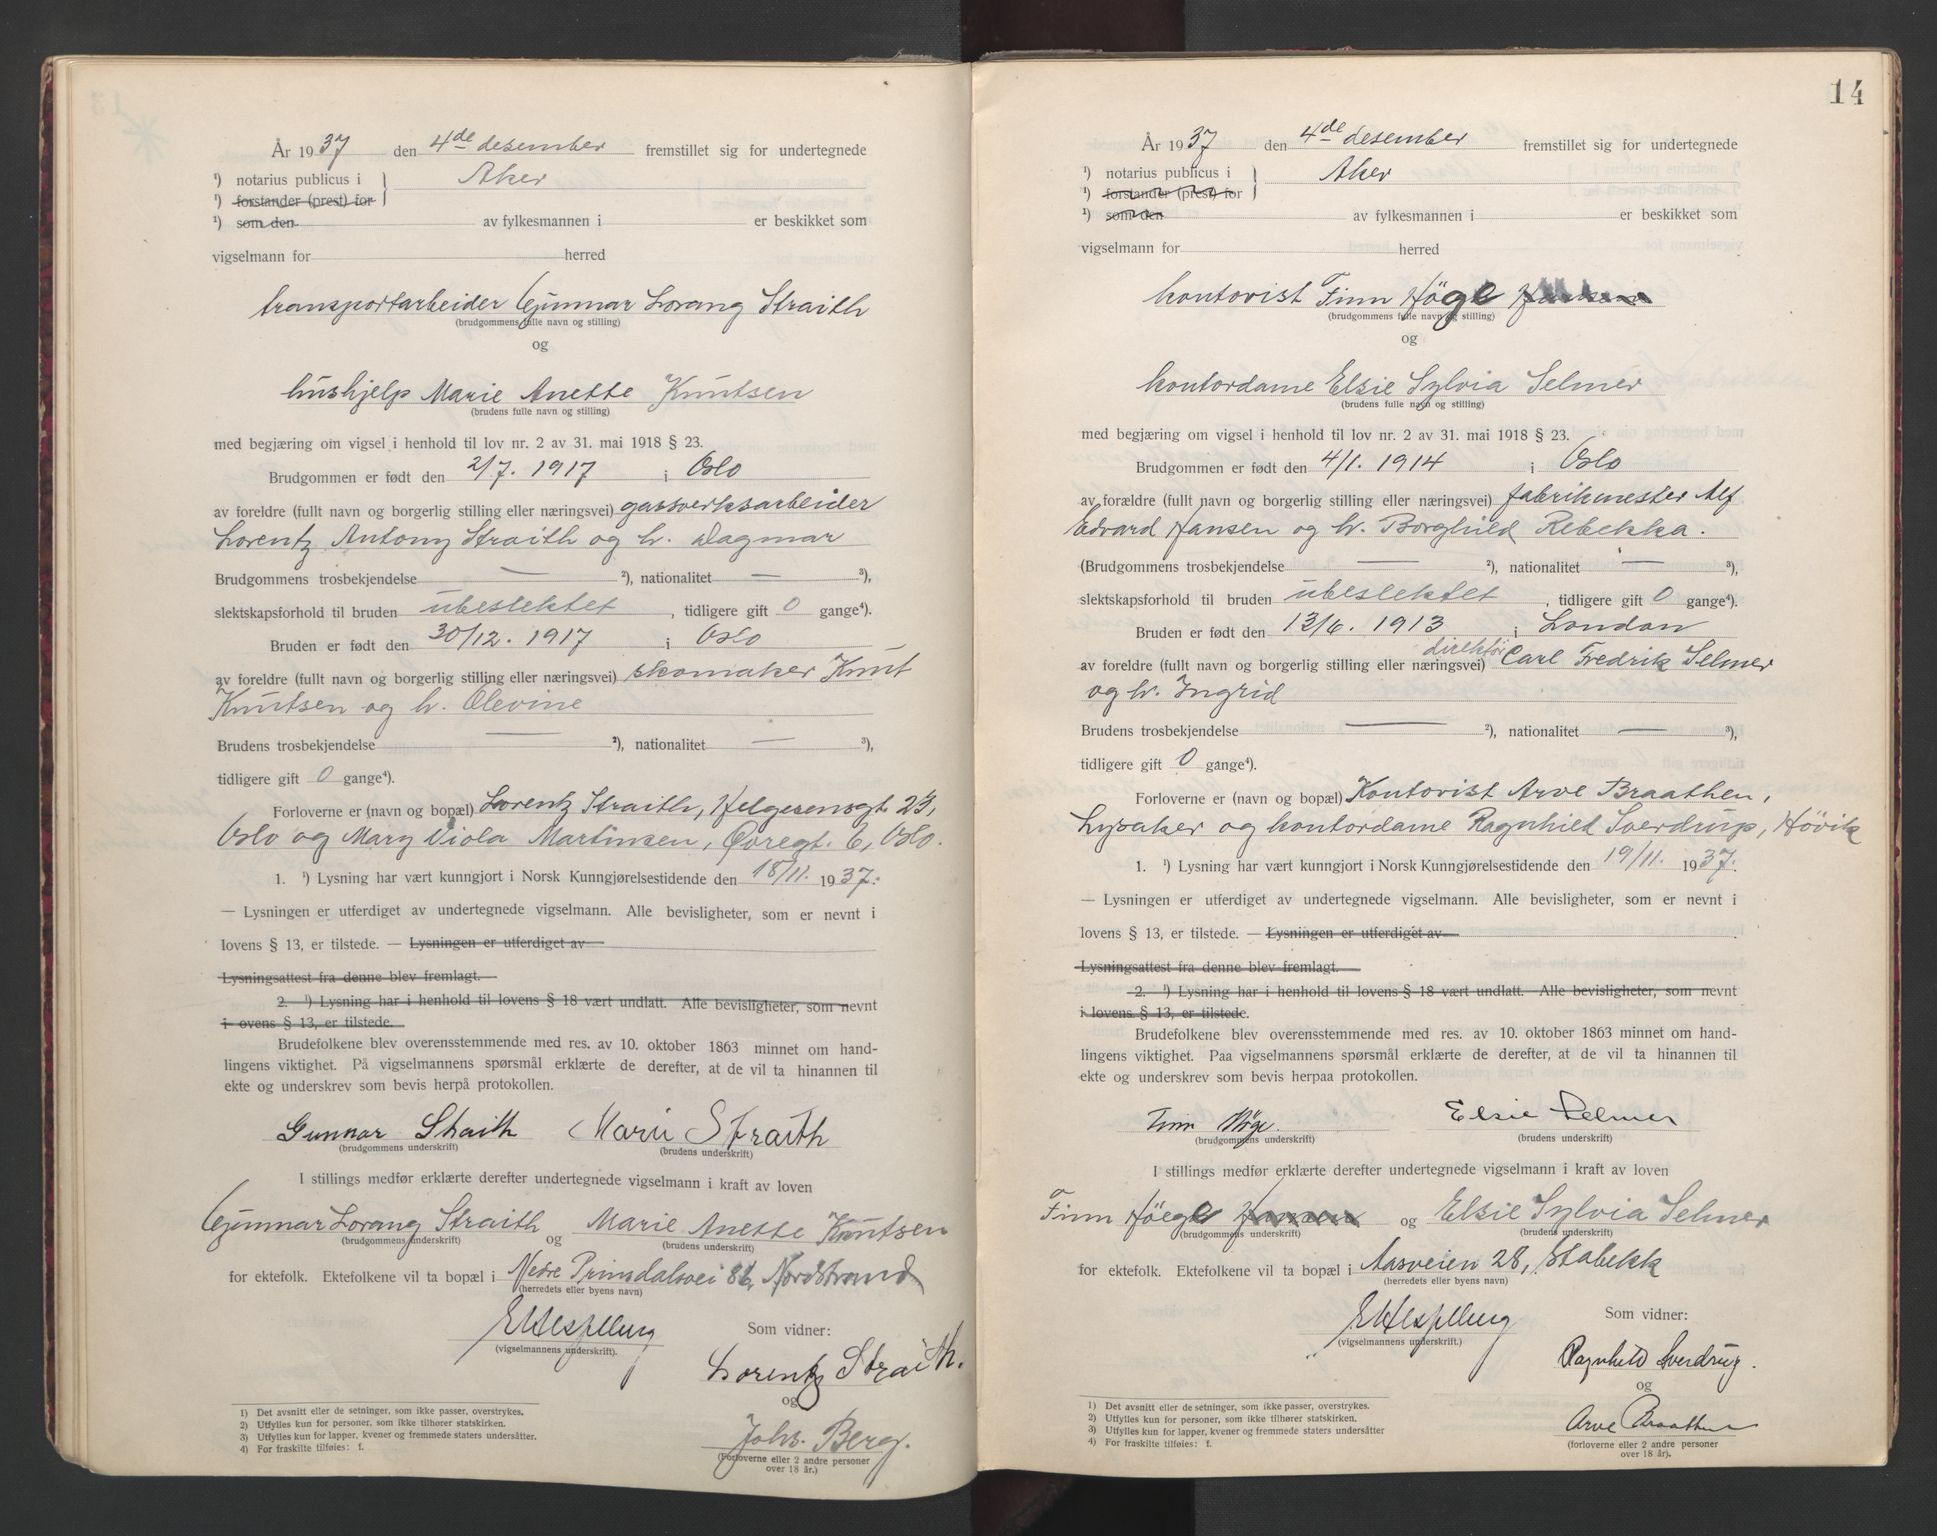 År 1937 den 4de desember fremstillet sig for undertegnede
¹) notarius publicus i } Aker
¹) forstander (prest) for
¹) som den av fylkesmannen i er beskikket som
vigselmann for herred
transportarbeider Gunnar Lorang Straith
(brudgommens fulle navn og stilling)
og
hushjelp Marie Anette Knutsen
(brudens fulle navn og stilling)
med begjæring om vigsel i henhold til lov nr. 2 av 31. mai 1918 § 23.
Brudgommen er født den 2/7. 1917 i Oslo
av foreldre (fullt navn og borgerlig stilling eller næringsvei) gassverksarbeider
Lorentz Antony Straith og h. Dagmar
Brudgommens trosbekjendelse — ²), nationalitet — ³),
slektskapsforhold til bruden ubeslektet, tidligere gift 0 gange⁴).
Bruden er født den 30/12. 1917 i Oslo
av foreldre (fullt navn og borgerlig stilling eller næringsvei) skomaker Knut
Knutsen og h. Olevine
Brudens trosbekjendelse — ²), nationalitet — ³),
tidligere gift 0 gange⁴).
Forloverne er (navn og bopæl) Lorentz Straith, Helgesensgt. 23,
Oslo og Mary Viola Martinsen, Øvregt. 6, Oslo.
1. ¹) Lysning har vært kunngjort i Norsk Kunngjørelsestidende den 18/11. 1937.
— Lysningen er utferdiget av undertegnede vigselmann. Alle bevisligheter, som er nevnt i
lovens § 13, er tilstede. — Lysningen er utferdiget av
Lysningsattest fra denne blev fremlagt.
2. ¹) Lysning har i henhold til lovens § 18 vært undlatt. Alle bevisligheter, som nevnt
i ovens § 13, er tilstede.
Brudefolkene blev overensstemmende med res. av 10. oktober 1863 minnet om hand-
lingens viktighet. På vigselmannens spørsmål erklærte de derefter, at de vil ta hinannen til
ekte og underskrev som bevis herpå protokollen.
Gunnar Straith Marie Straith
(brudgommens underskrift) (brudens underskrift)
I stillings medfør erklærte derefter undertegnede vigselmann i kraft av loven
Gunnar Lorang Straith og Marie Anette Knutsen
(brudgommens underskrift) (brudens underskrift)
for ektefolk. Ektefolkene vil ta bopæl i Nedre Prinsdalsvei 86, Nordstrand
(herredets eller byens navn)
(vigselmannens underskrift). Som vidner:
Lorentz Straith.
og
Johs. Berg.
(Forloverne eller 2 andre personer
over 18 år.)
1) Det avsnitt eller de setninger, som ikke passer, overstrykes.
2) Utfylles kun for personer, som ikke tilhører statskirken.
3) Utfylles kun for lapper, kvener og fremmede staters undersåtter.
4) For fraskilte tilføies: f.
14
År 1937 den 4de desember fremstillet sig for undertegnede
¹) notarius publicus i } Aker
¹) forstander (prest) for
¹) som den av fylkesmannen i er beskikket som
vigselmann for herred
kontorist Finn Høge Hansen
(brudgommens fulle navn og stilling)
og
kontordame Elsie Sylvia Selmer
(brudens fulle navn og stilling)
med begjæring om vigsel i henhold til lov nr. 2 av 31. mai 1918 § 23.
Brudgommen er født den 4/1. 1914 i Oslo
av forældre (fullt navn og borgerlig stilling eller næringsvei) fabrikmester Alf
Edvard Hansen og h. Borghild Rebekka.
(Brudgommens trosbekjendelse — ²), nationalitet — ³),
slektskapsforhold til bruden ubeslektet, tidligere gift 0 gange⁴).
Bruden er født den 13/6. 1913 i London
av foreldre (fullt navn og borgerlig stilling eller næringsvei) direktør Carl Fredrik Selmer
og h. Ingrid
Brudens trosbekjendelse — ²), nationalitet — ³),
tidligere gift 0 gange⁴).
Forloverne er (navn og bopæl) Kontorist Arve Braathen,
Lysaker og kontordame Ragnhild Sverdrup, Hövik
1. ¹) Lysning har vært kunngjort i Norsk Kunngjørelsestidende den 19/11. 1937.
— Lysningen er utferdiget av undertegnede vigselmann. Alle bevisligheter, som er nevnt i
lovens § 13, er tilstede. — Lysningen er utferdiget av
Lysningsattest fra denne blev fremlagt.
2. ¹) Lysning har i henhold til lovens § 18 vært undlatt. Alle bevisligheter, som nevnt
i lovens § 13, er tilstede.
Brudefolkene blev overensstemmende med res. av 10. oktober 1863 minnet om hand-
lingens viktighet. Paa vigselmannens spørsmål erklærte de derefter, at de vil ta hinannen til
ekte og underskrev som bevis herpaa protokollen.
Finn Høge. Elsie Selmer
(brudgommens underskrift) (brudens underskrift)
I stillings medfør erklærte derefter undertegnede vigselmann i kraft av loven
Finn Høege Hansen og Elsie Sylvia Selmer
(brudgommens underskrift) (brudens underskrift)
for ektefolk. Ektefolkene vil ta bopæl i Aasveien 28, Stabekk
(herredets eller byens navn)
(vigselmannens underskrift.) Som vidner:
Ragnhild Sverdrup.
og
Arve Braathen
(forloverne eller 2 andre personer
over 18 år).
1) Det avsnitt eller de setninger, som ikke passer, overstrykes.
2) Utfylles kun for personer, som ikke tilhører statskirken.
3) Utfylles kun for lapper, kvener og fremmede staters undersåtter
4) For fraskilte tilføies: f.